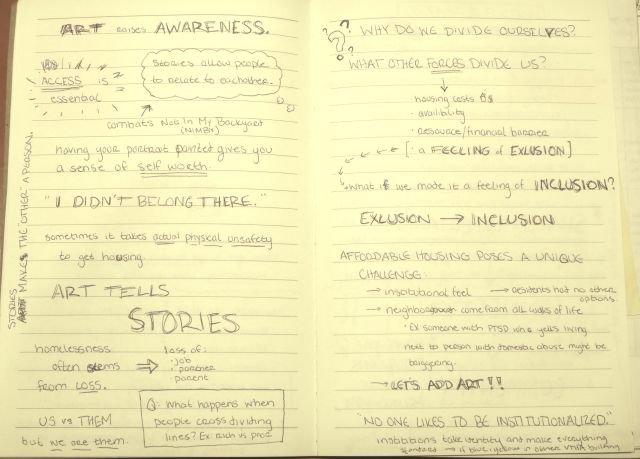 ART raises AWARENESS.
ACCESS is
essential
Stories allow people
to relate to eachother.
combats Not In My Backyard
(NIMBY)
having your portrait painted gives you
a sense of self worth.
"I DIDN'T BELONG THERE."
sometimes it takes actual physical unsafety
to get housing.
ART TELLS
STORIES
homelessness
often stems
from LOSS.
loss of:
· job
· partner
· parent
US vs THEM
but we are them.
Q: What happens when
people cross dividing
lines? Ex: rich vs poor
STORIES
MAKES THE "OTHER" A PERSON.
WHY DO WE DIVIDE OURSELVES?
WHAT OTHER FORCES DIVIDE US?
· housing costs $$
· availibility
· resource/financial barrier
[· a FEELING of EXLUSION]
What if we made it a feeling of INCLUSION?
EXLUSION → INCLUSION
AFFORDABLE HOUSING POSES A UNIQUE
CHALLENGE:
→ institutional feel → residents hav no other
options.
→ neighbors come from all walks of life
· Ex someone with PTSD who yells living
next to person with domestic abuse might be
triggering.
→ LET'S ADD ART!!
"NO ONE LIKES TO BE INSTITUTIONALIZED."
institutions take identity and make everything
standard → if blue, yellow in others